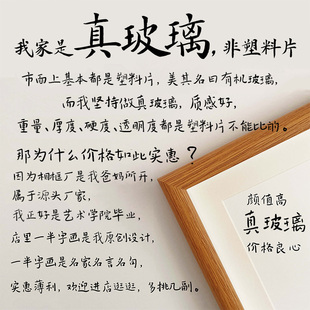 我家是真玻璃，非塑料片
市面上基本都是塑料片，美其名曰有机玻璃，
而我坚持做真玻璃，质感好，
重量、厚度、硬度、透明度都是塑料片不能比的。
那为什么价格如此实惠？
因为相框厂是我爸妈所开，
属于源头厂家，
我正好是艺术学院毕业，
店里一半字画是我原创设计，
一半字画是名家名言名句，
实惠薄利，欢迎进店逛逛，多挑几副。
颜值高
真玻璃
价格良心